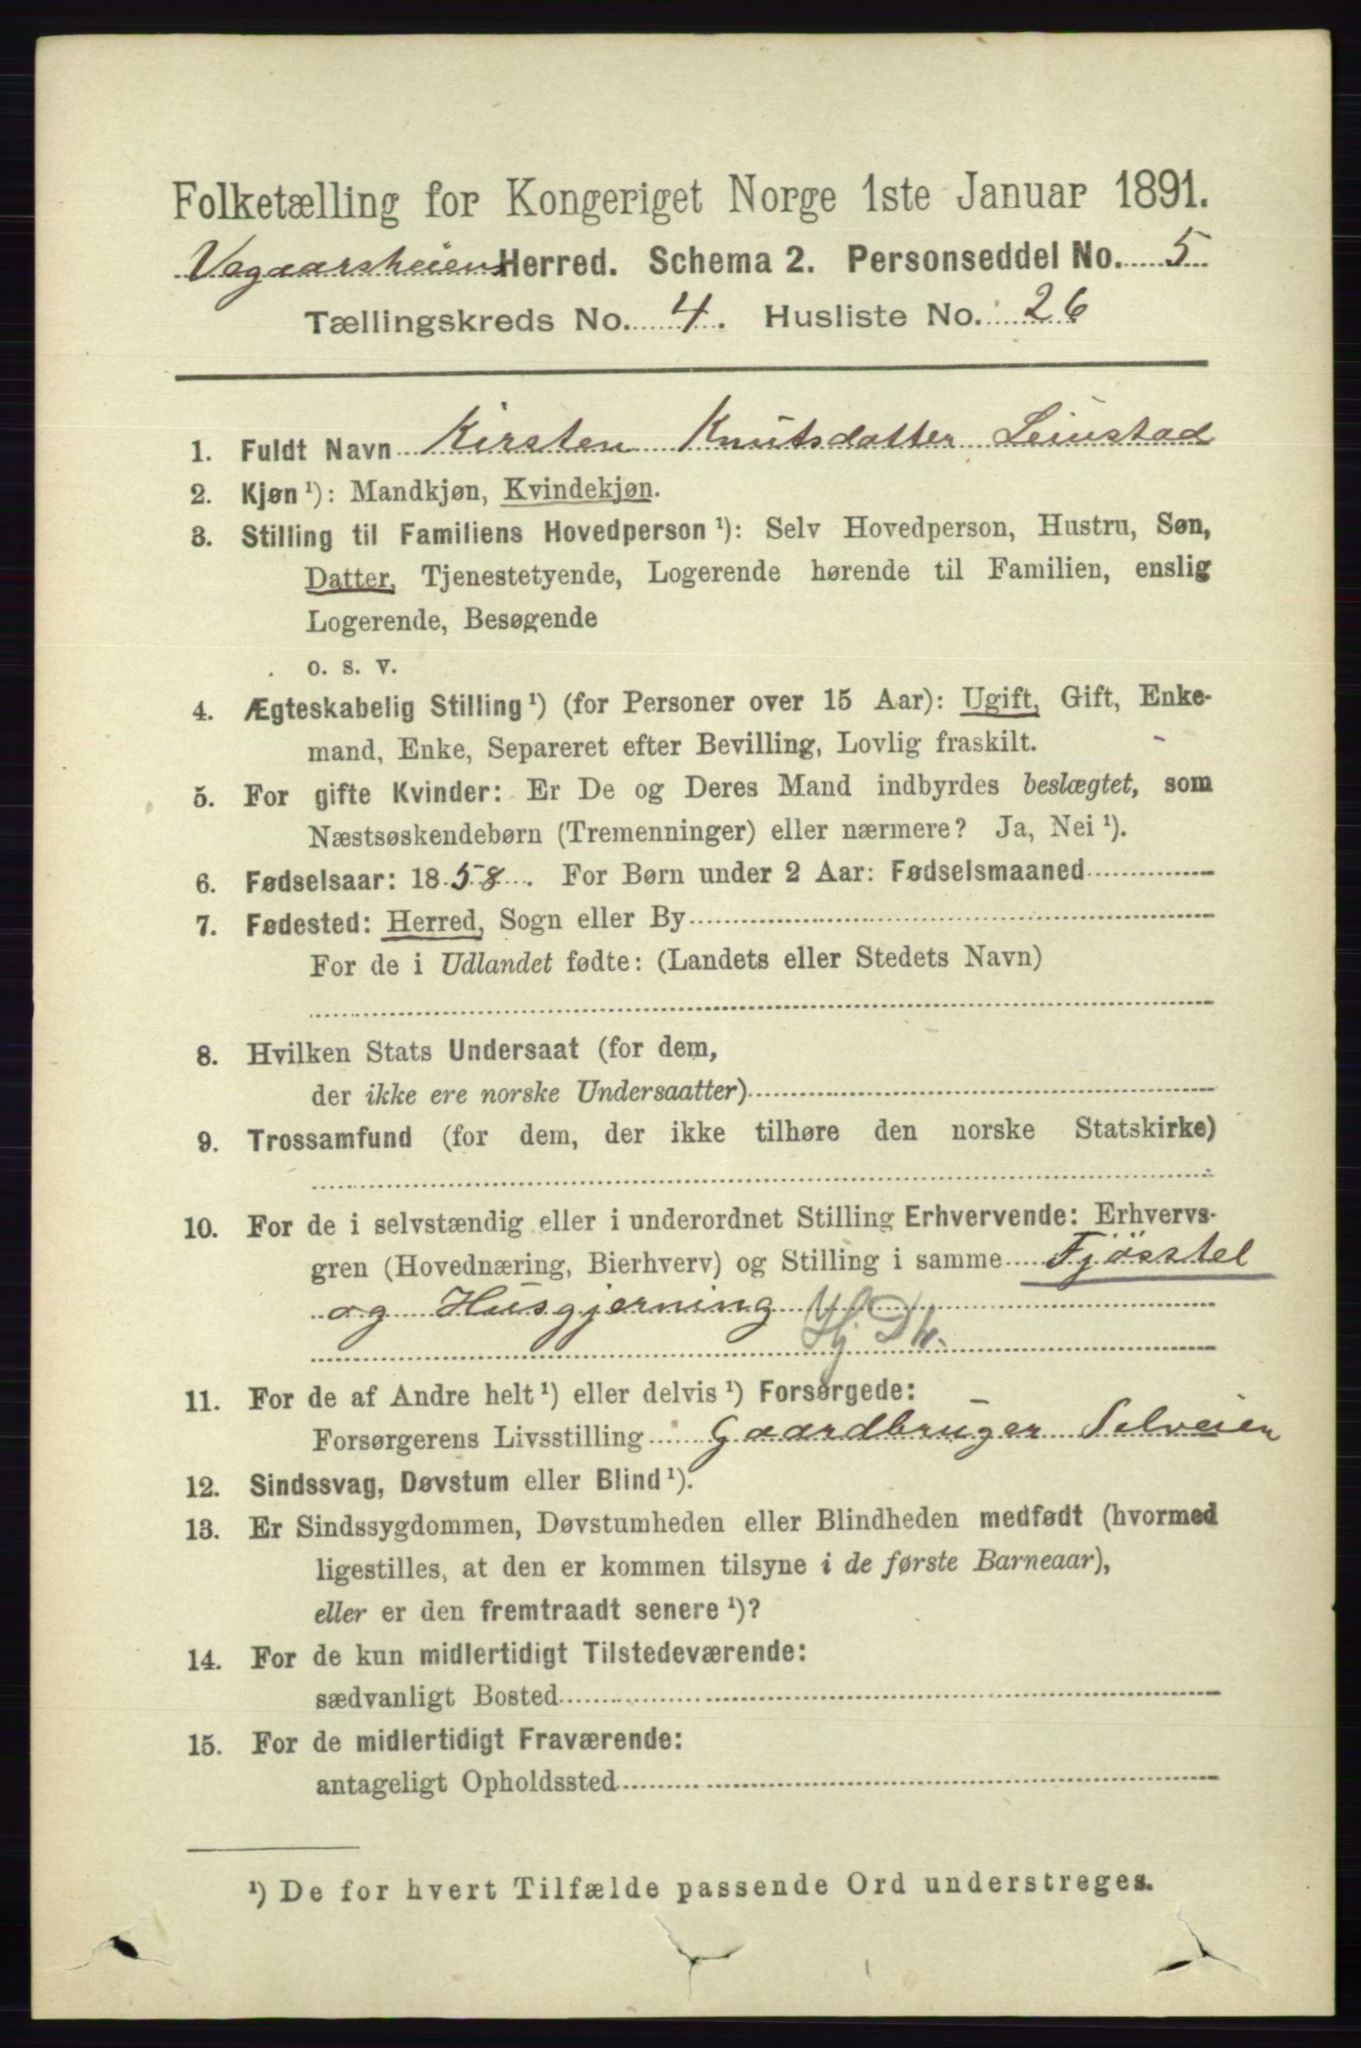 Folketælling for Kongeriget Norge 1ste Januar 1891.
Vegaarsheiens Herred. Schema 2. Personseddel No. 5
Tællingskreds No. 4. Husliste No. 26
1. Fuldt Navn Kirsten Knutsdatter Leiustad
2. Kjøn ¹): Mandkjøn, Kvindekjøn.
3. Stilling til Familiens Hovedperson ¹): Selv Hovedperson, Hustru, Søn,
Datter, Tjenestetyende, Logerende hørende til Familien, enslig
Logerende, Besøgende
o. s. v.
4. Ægteskabelig Stilling ¹) (for Personer over 15 Aar): Ugift, Gift, Enke-
mand, Enke, Separeret efter Bevilling, Lovlig fraskilt.
5. For gifte Kvinder: Er De og Deres Mand indbyrdes beslægtet, som
Næstsøskendebørn (Tremenninger) eller nærmere? Ja, Nei ¹).
6. Fødselsaar: 1858. For Børn under 2 Aar: Fødselsmaaned
7. Fødested: Herred, Sogn eller By
For de i Udlandet fødte: (Landets eller Stedets Navn)
8. Hvilken Stats Undersaat (for dem,
der ikke ere norske Undersaatter)
9. Trossamfund (for dem, der ikke tilhøre den norske Statskirke)
10. For de i selvstændig eller i underordnet Stilling Erhvervende: Erhvervs-
gren (Hovednæring, Bierhverv) og Stilling i samme Fjøsstel
og Husgjerning Hj Dtr.
11. For de af Andre helt ¹) eller delvis ¹) Forsørgede:
Forsørgerens Livsstilling Gaardbruger Selveien
12. Sindssvag, Døvstum eller Blind ¹).
13. Er Sindssygdommen, Døvstumheden eller Blindheden medfødt (hvormed
ligestilles, at den er kommen tilsyne i de første Barneaar),
eller er den fremtraadt senere ¹)?
14. For de kun midlertidigt Tilstedeværende:
sædvanligt Bosted
15. For de midlertidigt Fraværende:
antageligt Opholdssted
¹) De for hvert Tilfælde passende Ord understreges.